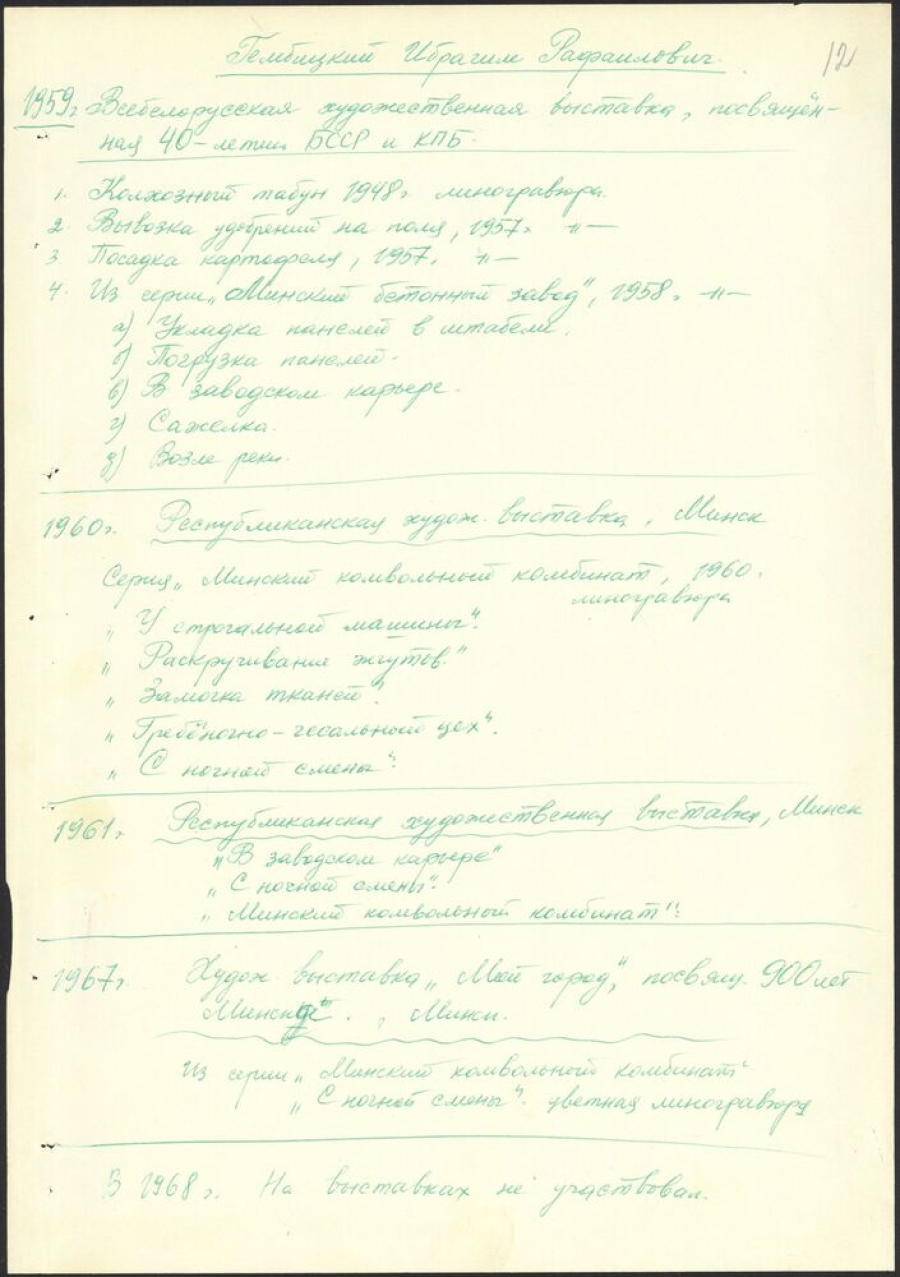 Гембицкий Ибрагим Рафаилович.
12
1959г. Всебелорусская художественная выставка, посвящён-
ная 40-летию БССР и КПБ.
1. Колхозный табун 1948г. линогравюра.
2. Вывозка удобрений на поля, 1957. -"-
3. Посадка картофеля, 1957. -"-
4. Из серии „Минский бетонный завод", 1958. -"-
а) Укладка панелей в штабели.
б) Погрузка панелей.
в) В заводском карьере.
г) Сажелка.
д) Возле реки.
1960г. Республиканская худож. выставка, Минск
Серия „Минский комвольный комбинат, 1960.
линогравюра
„У строгальной машины".
„Раскручивание жгутов."
„Замочка тканей".
„Гребёночно-чесальный цех".
„С ночной смены".
1961г. Республиканская художественная выставка, Минск
„В заводском карьере"
„С ночной смены".
„Минский комвольный комбинат".
1967г. Худож. выставка „Мой город", посвящ. 900 лет
Минску., Минск.
Из серии „Минский комвольный комбинат"
„С ночной смены". цветная линогравюра
В 1968г. На выставках не участвовал.